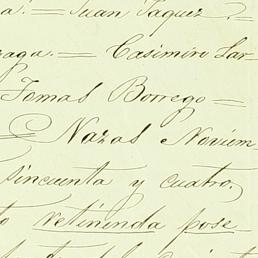 a. = Juan Vaquez. =
raga. = Casimiro Lar-
Tomas Borrego =
= Nazas Noviem-
sincuenta y cuatro.
to retinenda pose-